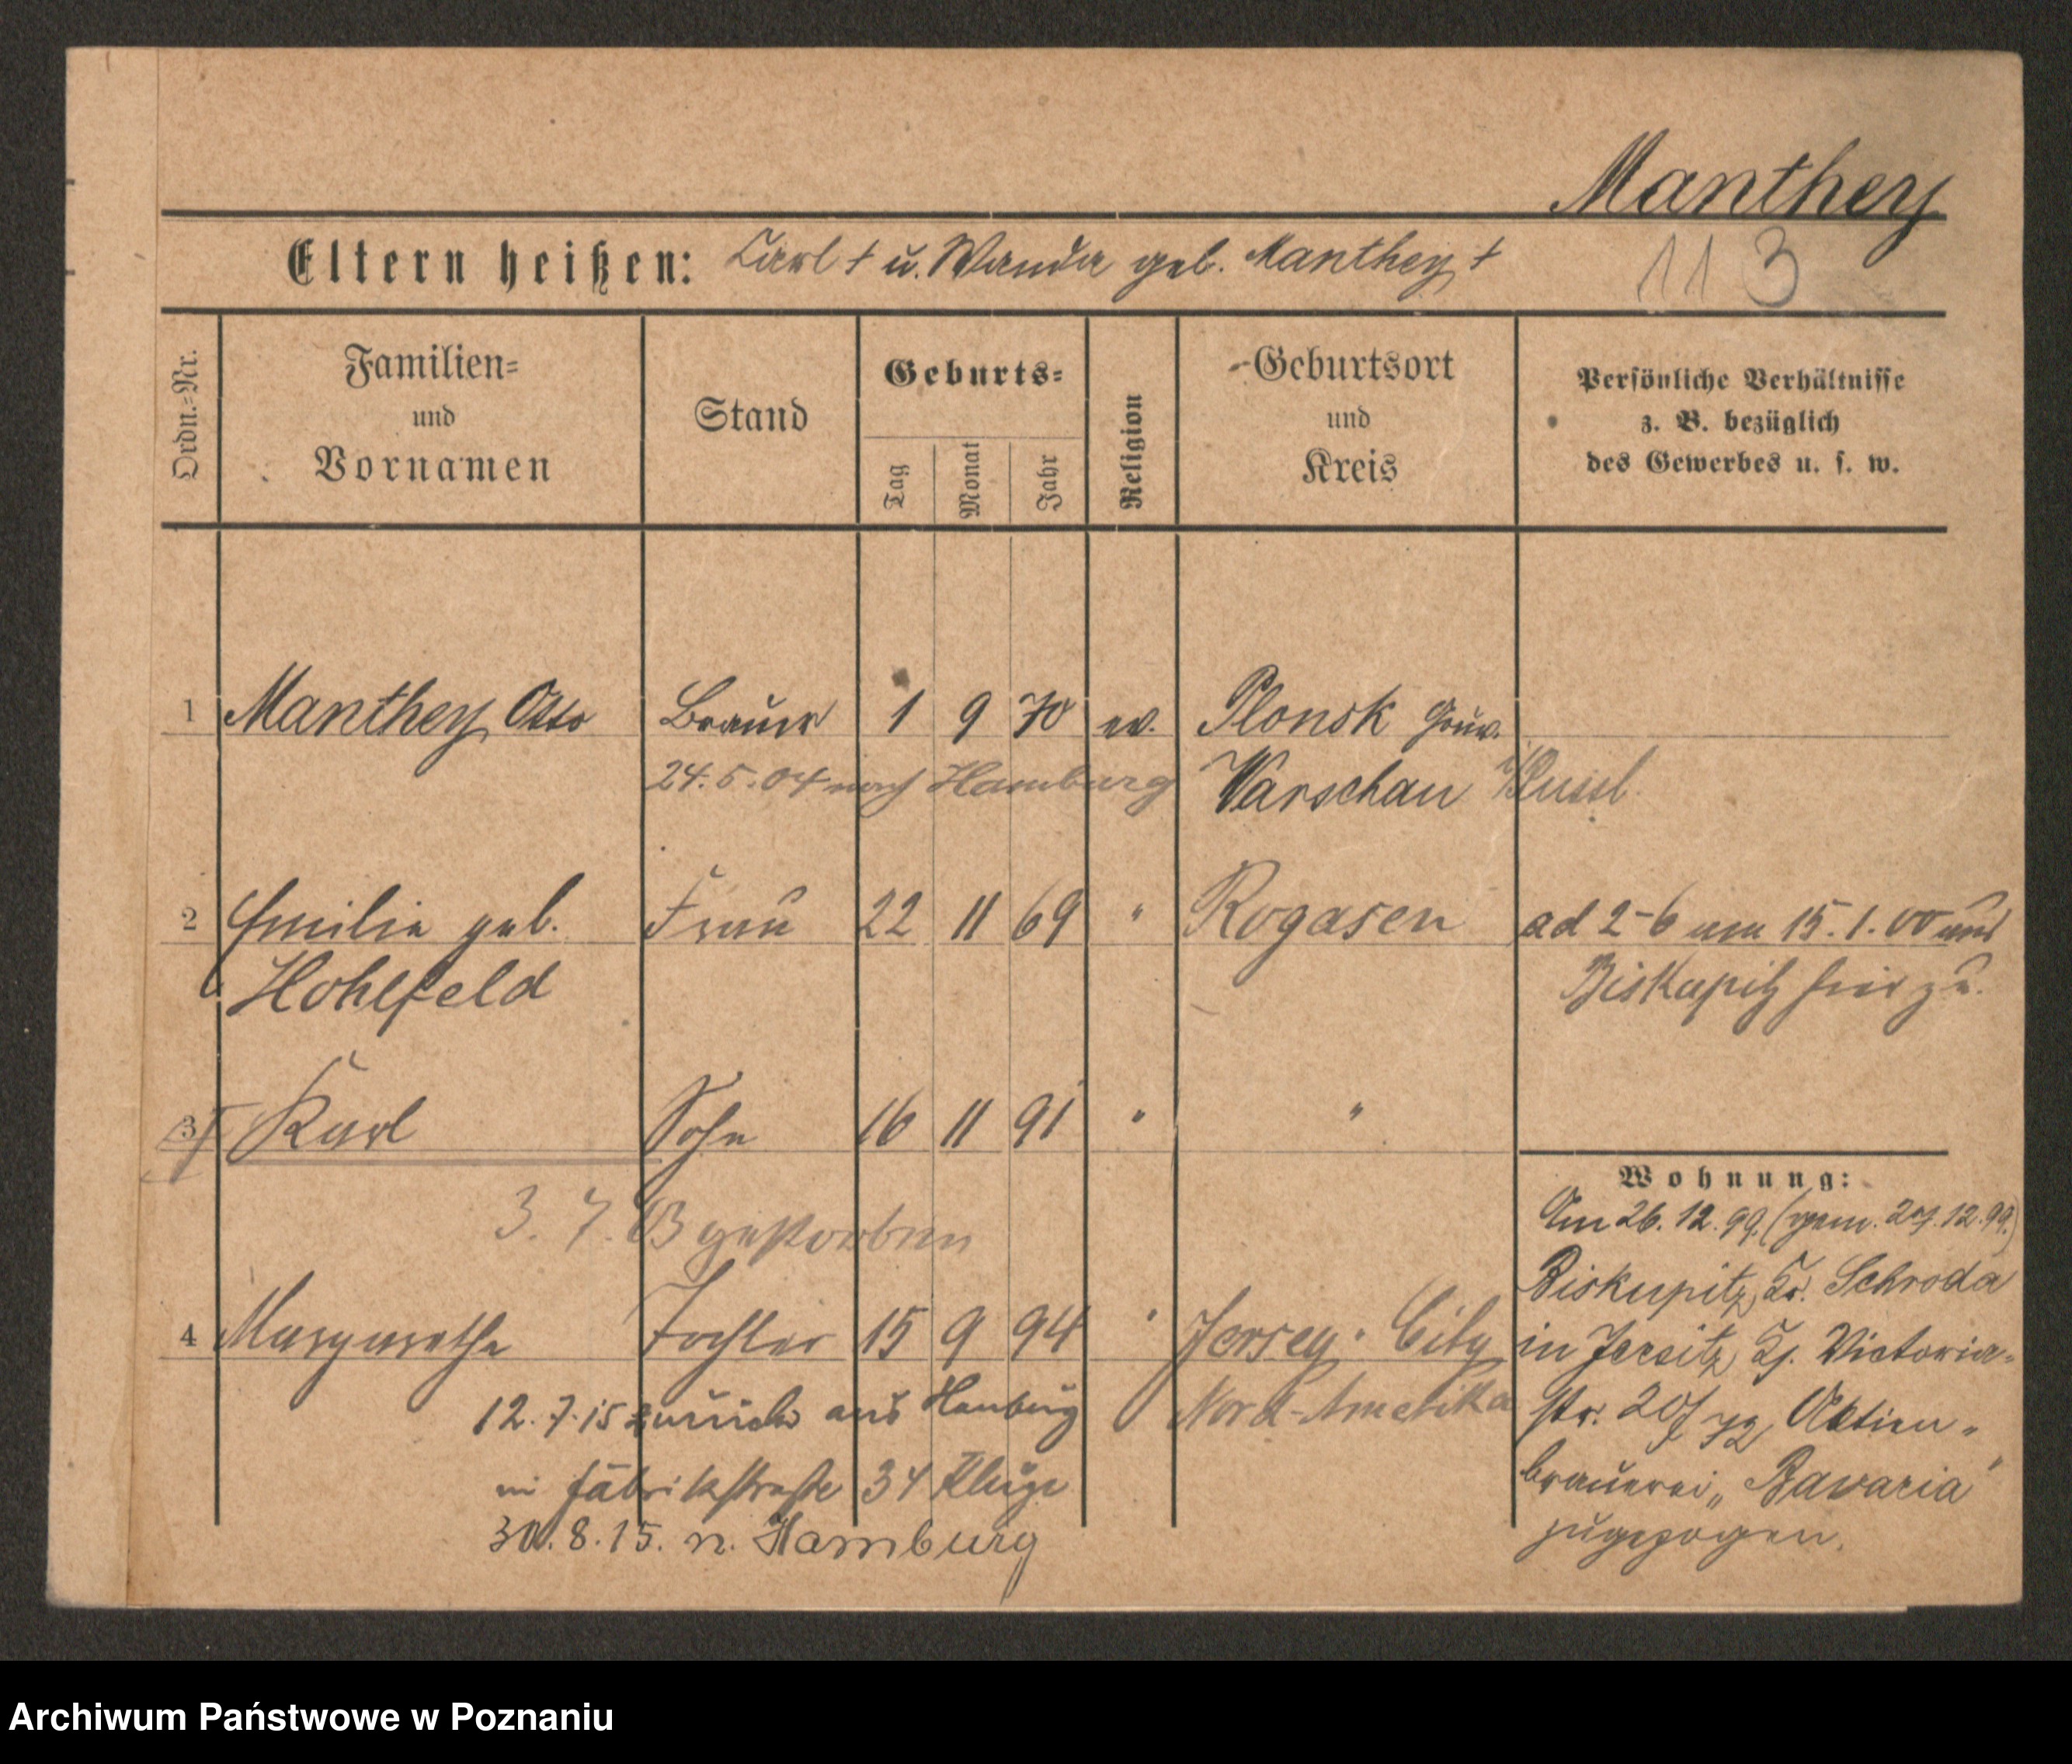 Manthey
Eltern heißen: Carl † u. Wanda geb. Manthey †
113
Ordn.=Nr.
Familien=
und
Vornamen
Stand
Geburts=
Tag
Monat
Jahr
Religion
Geburtsort
und
Kreis
Persönliche Verhältnisse
z. B. bezüglich
des Gewerbes u. s. w.
1 Manthey Otto Brauer 1 9 70 ev. Plonsk Gouv.
24.5.04 nach Hamburg Warschau Russl.
2 Emilie geb. Frau 22 11 69 " Rogasen
Hohlfeld
ad 2-6 am 15.1.00 aus
Biskupitz hier zu.
3 Karl Sohn 16 11 91 " "
3.7. gestorben
4 Margarethe Tochter 15 9 94 " Jersey-City
Nord-Amerika
12.7.15 zurück aus Hamburg
in Fabrikstraße 34 Kluge
30.8.15. n. Hamburg
Wohnung:
Am 26.12.99. (gem. 29.12.99.)
Biskupitz, Kr. Schroda
in Jersitz, Victoria-
str. 20/ Aktien-
brauerei „Bavaria"
zugezogen.
Archiwum Państwowe w Poznaniu